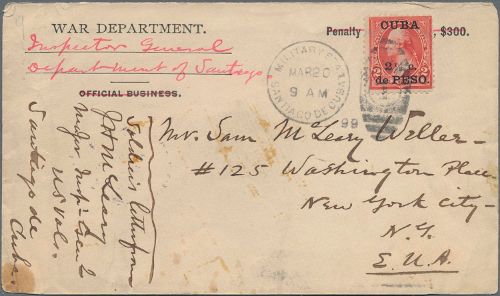 WAR DEPARTMENT.
Inspector General
Department of Santiago.
OFFICIAL BUSINESS.
Penalty
, $300.
CUBA
2½ c.
de PESO.
MILITARY STA
MAR 20
9 AM
99
SANTIAGO DE CUBA
Mr. Sam McLeary Weller-
#125 Washington Place
New York City-
N.Y.
E.U.A.
Soldier's letter from
McLeary
Major Insp. Gen'l
US Vol.
Santiago de
Cuba.